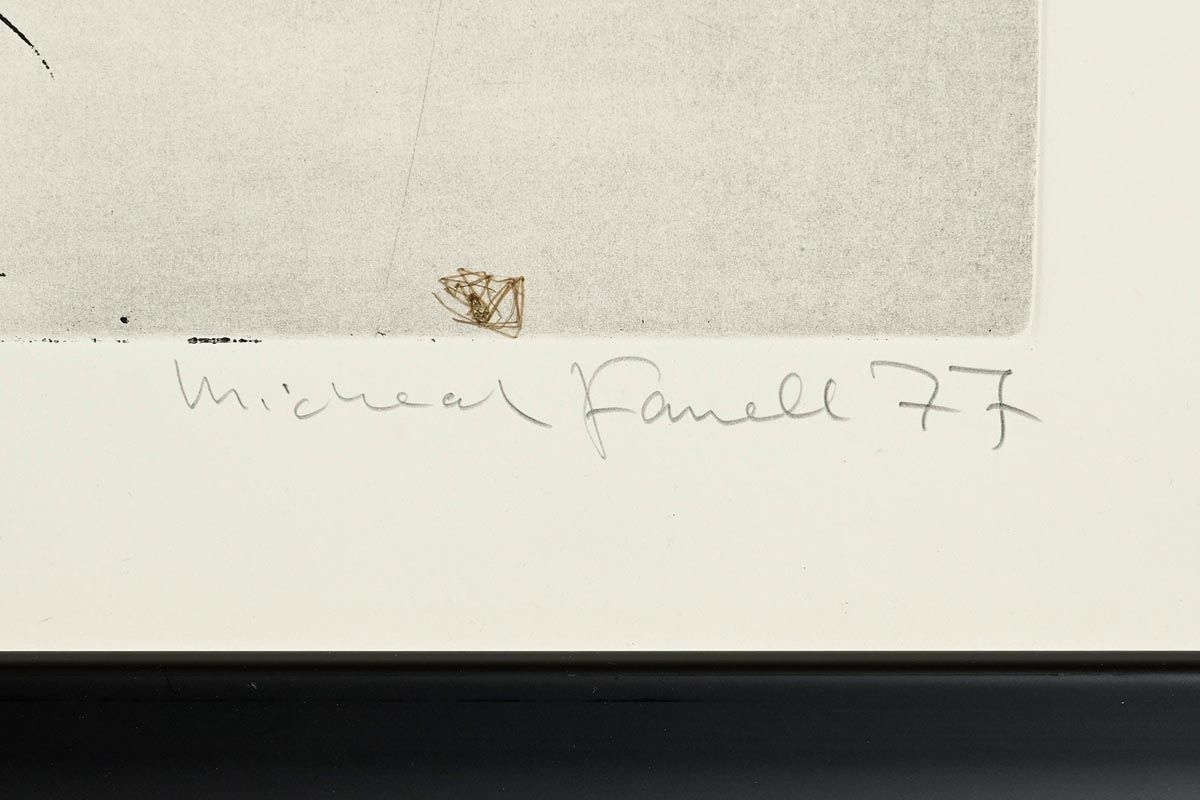 Micheal Farrell 77